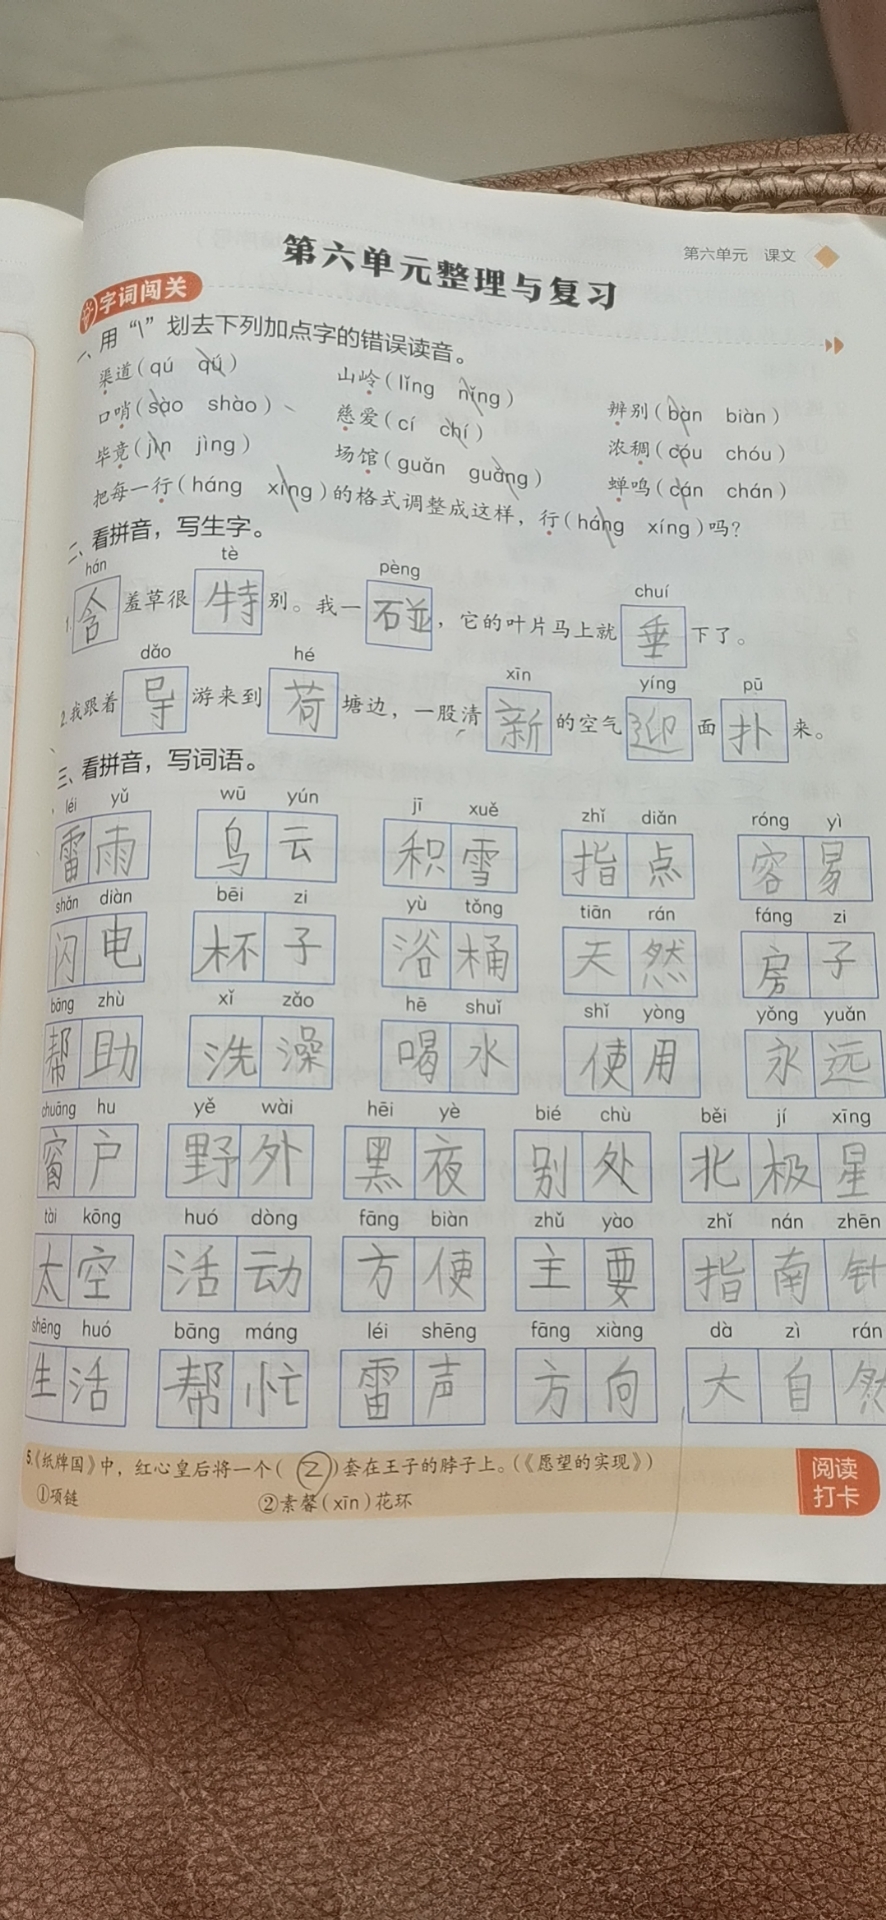 第六单元 课文
第六单元整理与复习
字词闯关
一、用“\”划去下列加点字的错误读音。
渠道(qú qǘ) 山岭(lǐng nǐng) 辨别(bàn biàn)
口哨(sào shào) 慈爱(cí chí) 浓稠(cóu chóu)
毕竟(jìn jìng) 场馆(guǎn guǎng) 蝉鸣(cán chán)
把每一行(háng xíng)的格式调整成这样，行(háng xíng)吗？
二、看拼音，写生字。
hán tè pèng chuí
1.含羞草很特别。我一碰，它的叶片马上就垂下了。
dǎo hé xīn yíng pū
2.我跟着导游来到荷塘边，一股清新的空气迎面扑来。
三、看拼音，写词语。
léi yǔ wū yún jī xuě zhǐ diǎn róng yì
雷雨 乌云 积雪 指点 容易
shǎn diàn bēi zi yù tǒng tiān rán fáng zi
闪电 杯子 浴桶 天然 房子
bāng zhù xǐ zǎo hē shuǐ shǐ yòng yǒng yuǎn
帮助 洗澡 喝水 使用 永远
chuāng hu yě wài hēi yè bié chù běi jí xīng
窗户 野外 黑夜 别处 北极星
tài kōng huó dòng fāng biàn zhǔ yào zhǐ nán zhēn
太空 活动 方便 主要 指南针
shēng huó bāng máng léi shēng fāng xiàng dà zì rán
生活 帮忙 雷声 方向 大自然
5.《纸牌国》中，红心皇后将一个(②)套在王子的脖子上。(《愿望的实现》)
①项链 ②素馨(xīn)花环
阅读
打卡